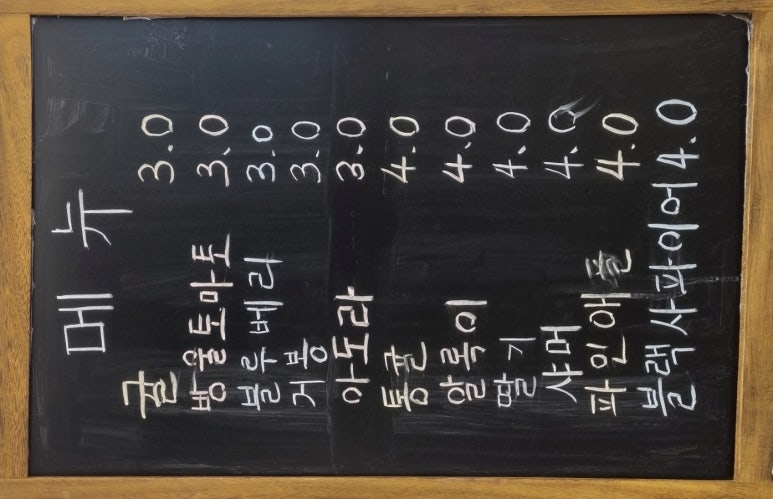 메 뉴
귤 3.0
방울토마토 3.0
블루베리 3.0
거봉 3.0
아도라 3.0
통귤 4.0
알록이 4.0
딸기 4.0
샤머 4.0
파인애플 4.0
블랙사파이어 4.0